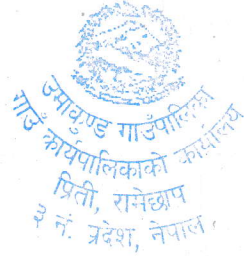 उमाकुण्ड गाउँपालिका
गाउँ कार्यपालिकाको कार्यालय
प्रिती, रामेछाप
३ नं. प्रदेश, नेपाल